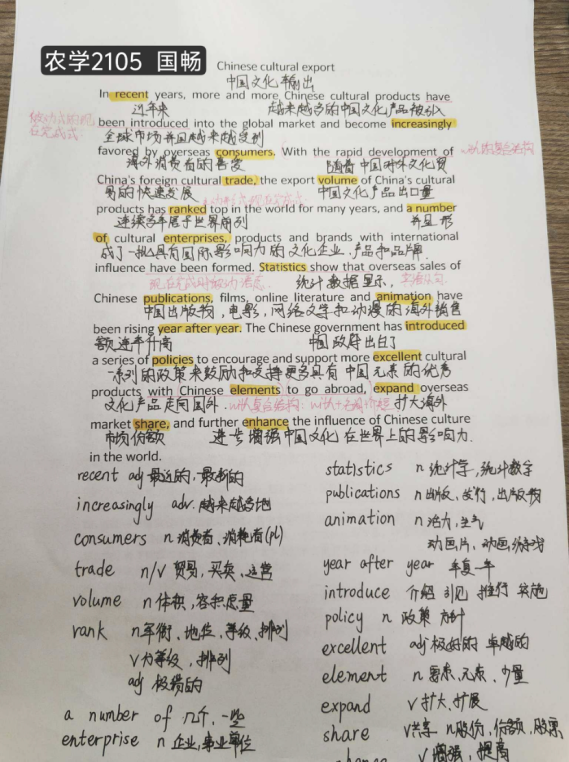 农学2105 国畅
Chinese cultural export
中国文化输出
In recent years, more and more Chinese cultural products have
近年来 越来越多的中国文化产品被引入
been introduced into the global market and become increasingly
全球市场并且越来越受到
favored by overseas consumers. With the rapid development of
海外消费者的喜爱 随着中国对外文化贸
China's foreign cultural trade, the export volume of China's cultural
易的快速发展 中国文化产品出口量
products has ranked top in the world for many years, and a number
连续多年居于世界前列 并且形
of cultural enterprises, products and brands with international
成了一批具有国际影响力的文化企业、产品和品牌
influence have been formed. Statistics show that overseas sales of
统计数据显示,
Chinese publications, films, online literature and animation have
中国出版物,电影,网络文学和动漫的海外销售
been rising year after year. The Chinese government has introduced
额逐年升高 中国政府出台了
a series of policies to encourage and support more excellent cultural
一系列的政策来鼓励和支持更多具有中国元素的优秀
products with Chinese elements to go abroad, expand overseas
文化产品走向国外. 扩大海外
market share, and further enhance the influence of Chinese culture
市场份额 进步增强中国文化在世界上的影响力.
in the world.
recent adj 最近的、最新的
increasingly adv. 越来越多地
consumers n 消费者、消耗者(pl)
trade n/v 贸易,买卖、运营
volume n 体积,容积总量
rank n 军衔、地位、等级、排列
v 为等级,排列
adj
a number of 几个,一些
enterprise n 企业,事业单位
statistics n 统计学,统计数字
publications n 出版、发行,出版物
animation n 活力,生气
动画片、动画
year after year 年复一年
introduce 介绍 引见 推行 实施
policy n 政策 方针
excellent adj 极好的 卓越的
element n 要素、元素、少量
expand v 扩大、扩展
share v 共享 n 股份,份额,股票
v 增强,提高